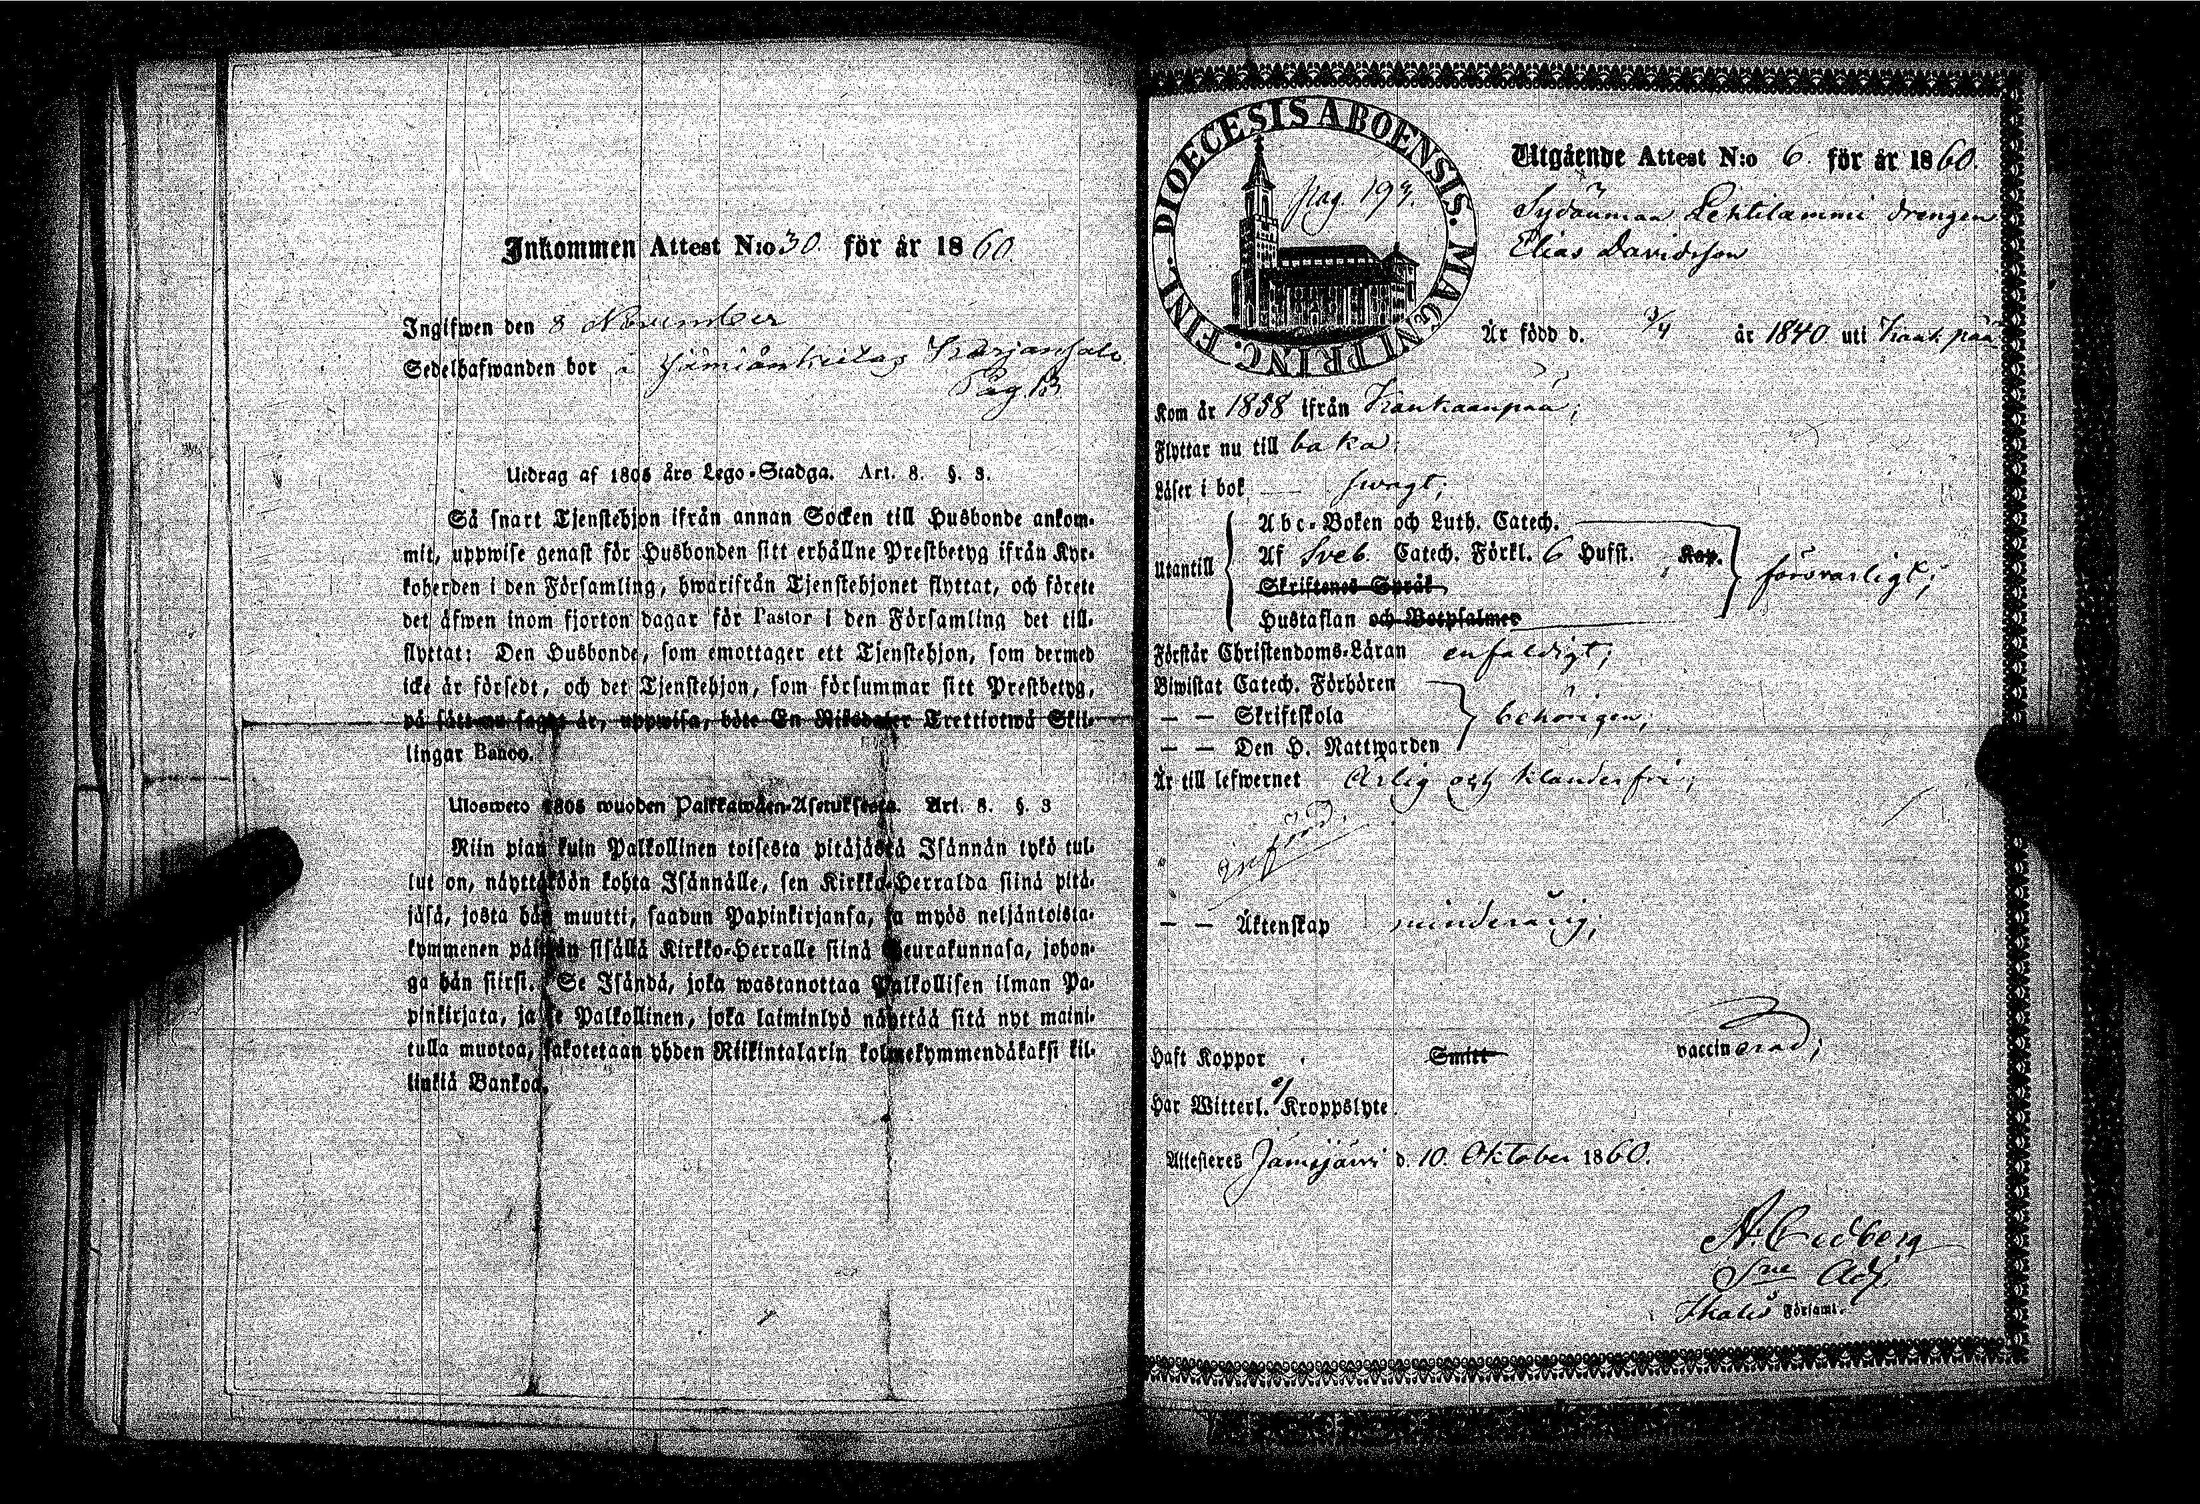 Inkommen Attest N:o 30 för år 1860.
Ingifwen den 8 November
Sedelhafwanden bor å
Pag. 13
Utdrag af 1805 års Lego-Stadga. Art. 8. §. 3.
Så snart Tjenstehjon ifrån annan Socken till Husbonde ankom-
mit, uppwise genast för Husbonden sitt erhållne Prestbetyg ifrån Kyr-
koherden i den Församling, hwarifrån Tjenstehjonet flyttat, och förete
det äfwen inom fjorton dagar för Pastor i den Församling det till-
flyttat: Den Husbonde, som emottager ett Tjenstehjon, som dermed
icke är försedt, och det Tjenstehjon, som försummar sitt Prestbetyg,
på sätt nu sagdt är, uppwisa, böte En Riksdaler Trettiotwå Skil-
lingar Banco.
Ulosweto 1805 wuoden Palkkawäen-Asetuksesta. Art. 8. §. 3
Niin pian kuin Palkollinen toisesta pitäjästä Isännän tykö tul-
lut on, näyttäköön kohta Isännälle, sen Kirkko-Herralda siinä pitä-
jäsä, josta hän muutti, saadun Papinkirjansa, ja myös neljäntoista-
kymmenen päiwän sisällä Kirkko-Herralle siinä Seurakunnasa, johon-
ga hän siirsi. Se Isändä, joka wastanottaa Palkollisen ilman Pa-
pinkirjata, ja se Palkollinen, joka laiminlyö näyttää sitä nyt maini-
tulla muotoa, sakotetaan yhden Riikintalarin kolmekymmendäkaksi kil-
linkiä Bankoa.
DIOECESIS ABOENSIS. MAGNI PRINC. FINL.
pag. 193.
Utgående Attest N:o 6. för år 1860.
Sydänmaa Lehtilammi drengen
Elias Davidsson
Är född d. 3/4 år 1840 uti Kankaanpää
Kom år 1858 ifrån Kankaanpää;
Flyttar nu till baka.
Läser i bok — swagt;
Utantill
Abc-Boken och Luth. Catech.
Af Sveb. Catech. Förkl. 6 Hufst. Kap.
Skriftenes Språk
Hustaflan och Botpsalmer
försvarligt;
Förstår Christendoms-Läran enfaldigt;
Biwistat Catech. Förhören
— — Skriftskola
behörigen;
— — Den H. Nattwarden
Är till lefwernet Ärlig och klanderfri;
införd.
— — Äktenskap minderårig;
Haft Koppor Smitt vaccinerad;
Har Witterl. Kroppslyte
Attesteres Jämijärvi d. 10. Oktober 1860.
Adj.
Ikalis Församl.